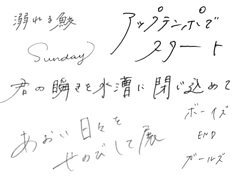 溺れる鮫
アップテンポで
スタート
Sunday
君の瞬きを水漕に閉じ込めて
ボーイズ
END
ガールズ
あおい日々を
せのびして展